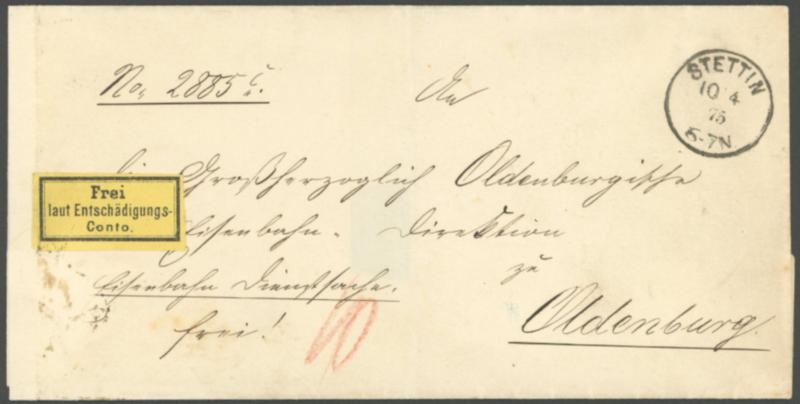 No. 2885 c.
An
STETTIN
10 4
75
6-7N
die Großherzoglich Oldenburgische
Frei
laut Entschädigungs-
Conto.
Eisenbahn- Direktion
zu
Eisenbahn Dienstsache.
frei!
Oldenburg.